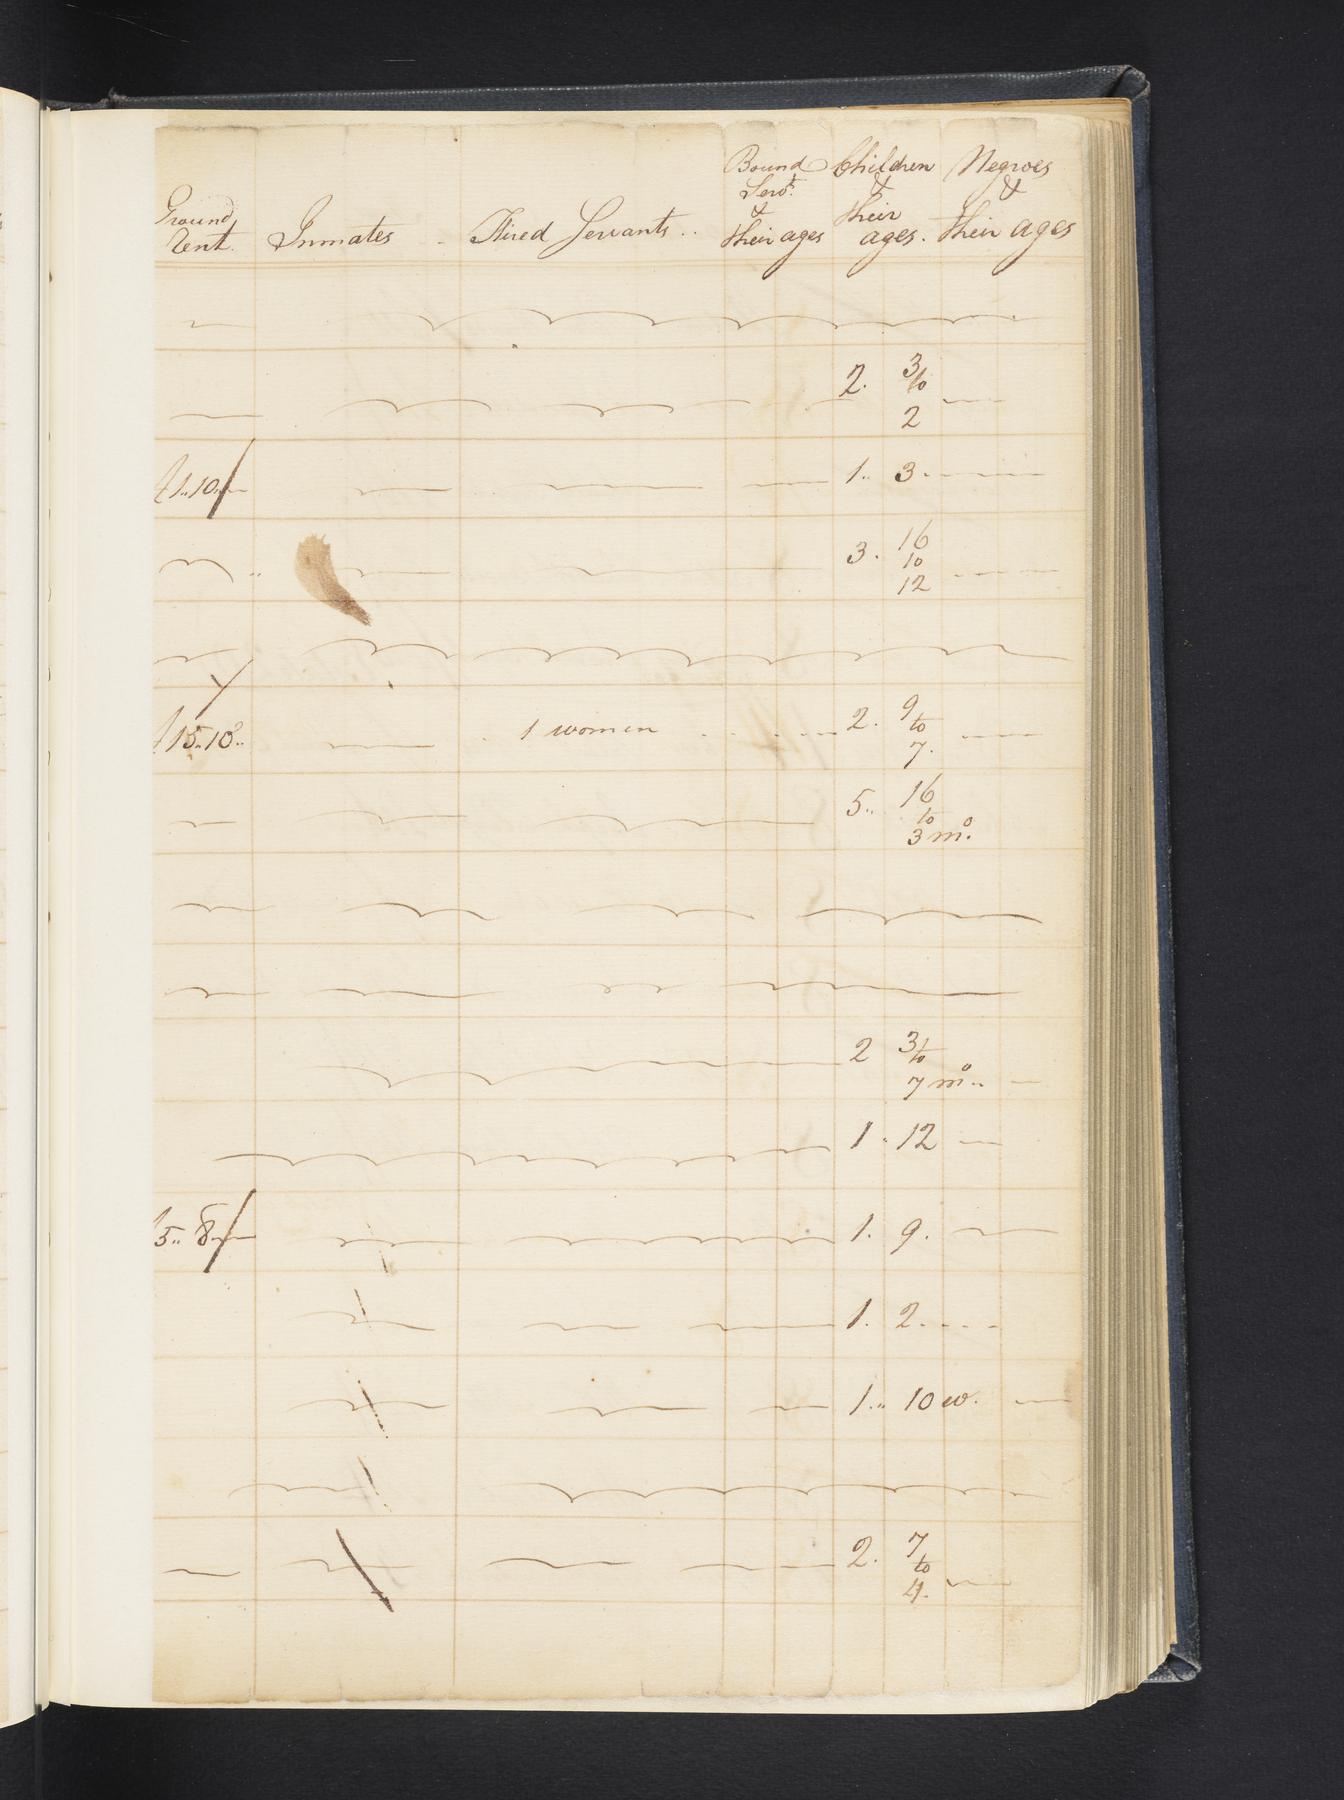 Ground Rent. Inmates Hired Servants.. Bound Servts. & their ages Children & their ages. Negroes & their ages
2. 3 to 2
£1..10..— 1.. 3.
3. 16 10 12
£15..10.. 1 women 2. 9 to 7.
5.. 16 to 3 mo.
2 3 to 7 mo..
1. 12
5.. 8..— 1. 9.
1. 2.
1.. 10 w.
2. 7 to 4.